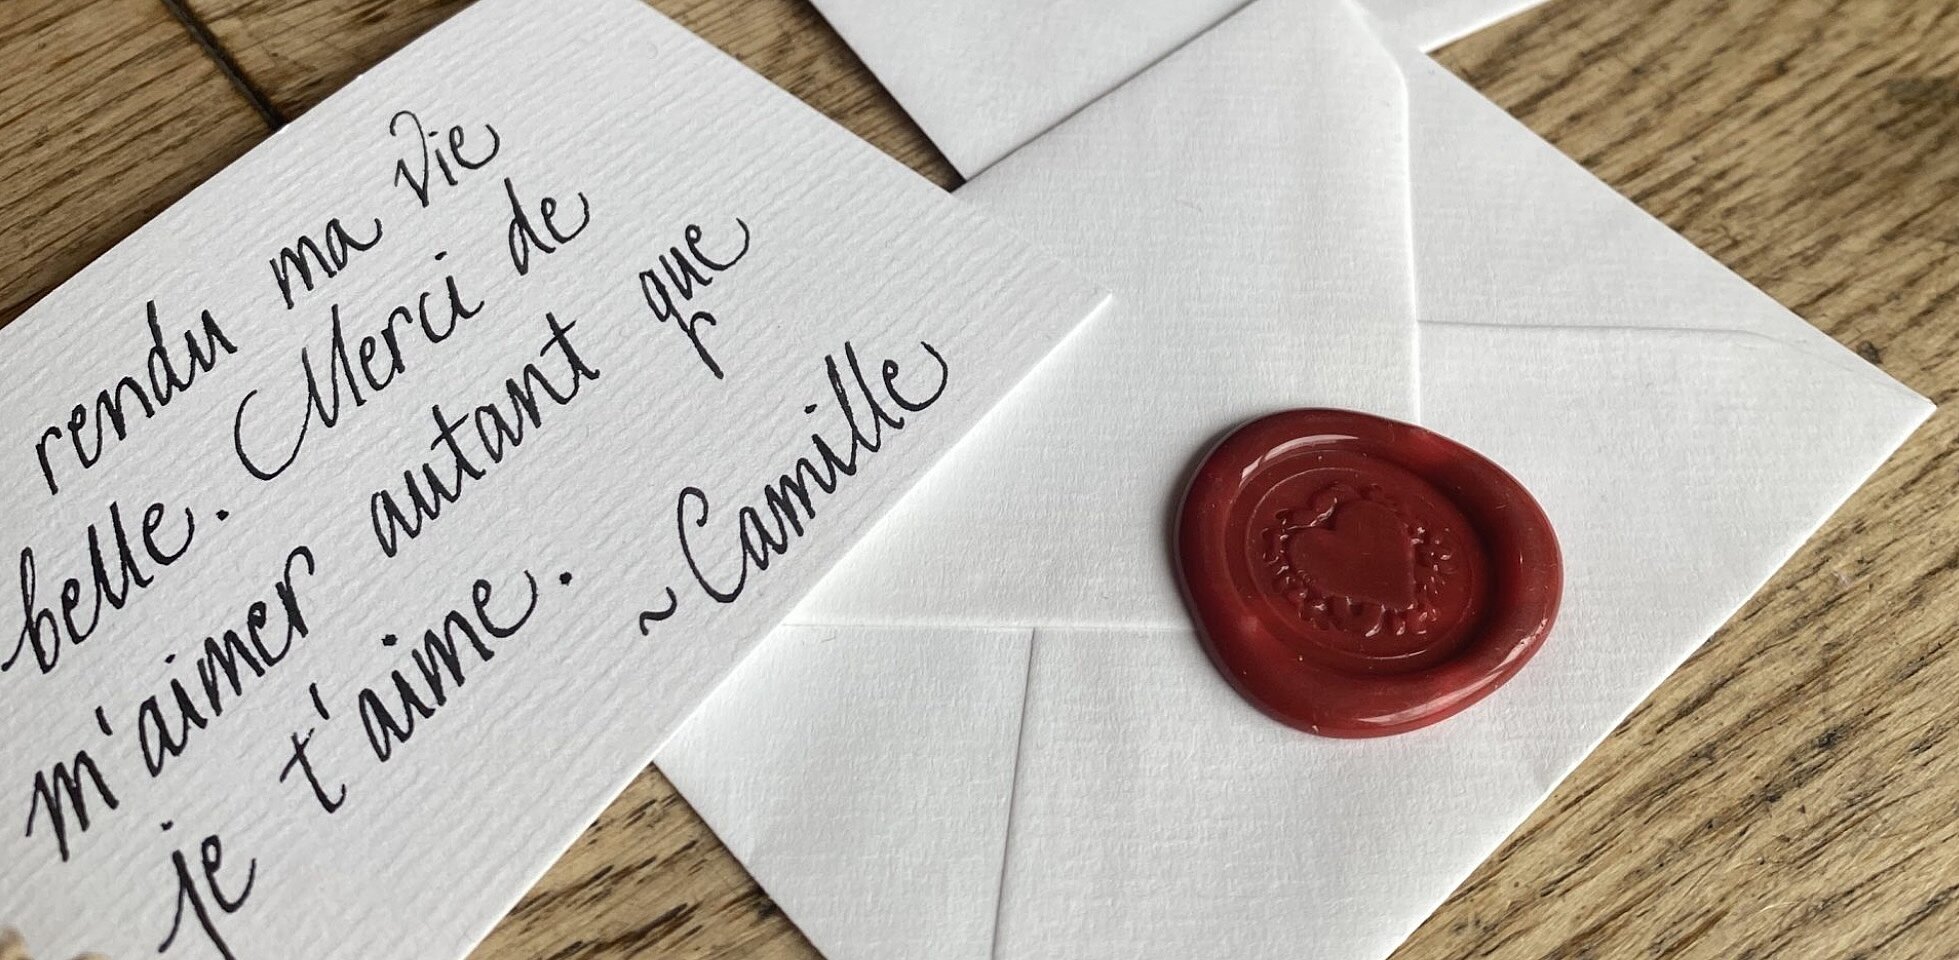 rendu ma vie
belle. Merci de
m'aimer autant que
je t'aime.
~Camille